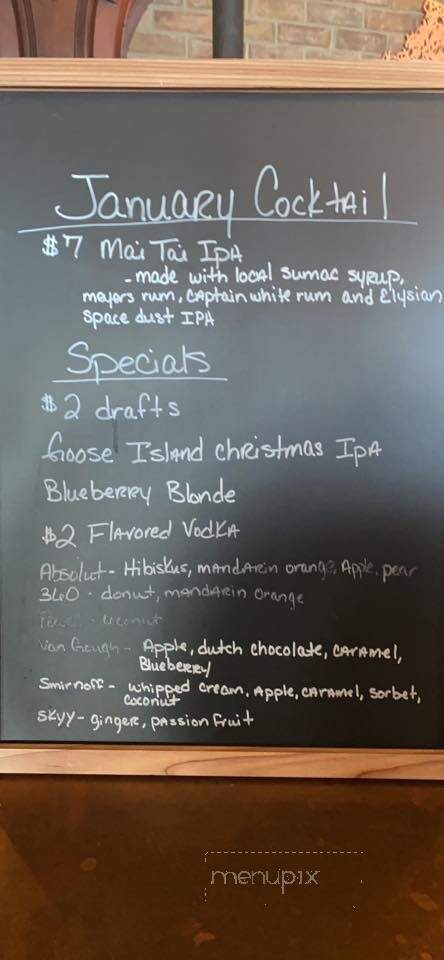 January Cocktail
$7 Mai Tai IPA
- made with local sumac syrup,
meyers rum, Captain white rum and Elysian
space dust IPA
Specials
$2 drafts
Goose Island christmas IPA
Blueberry Blonde
$2 Flavored Vodka
Absolut - Hibiskus, mandarin orange, Apple, pear
360 - donut, mandarin orange
- coconut
Van Gough - Apple, dutch chocolate, caramel,
Blueberry
Smirnoff - whipped cream, Apple, caramel, sorbet,
coconut
Skyy - ginger, passion fruit
menupix